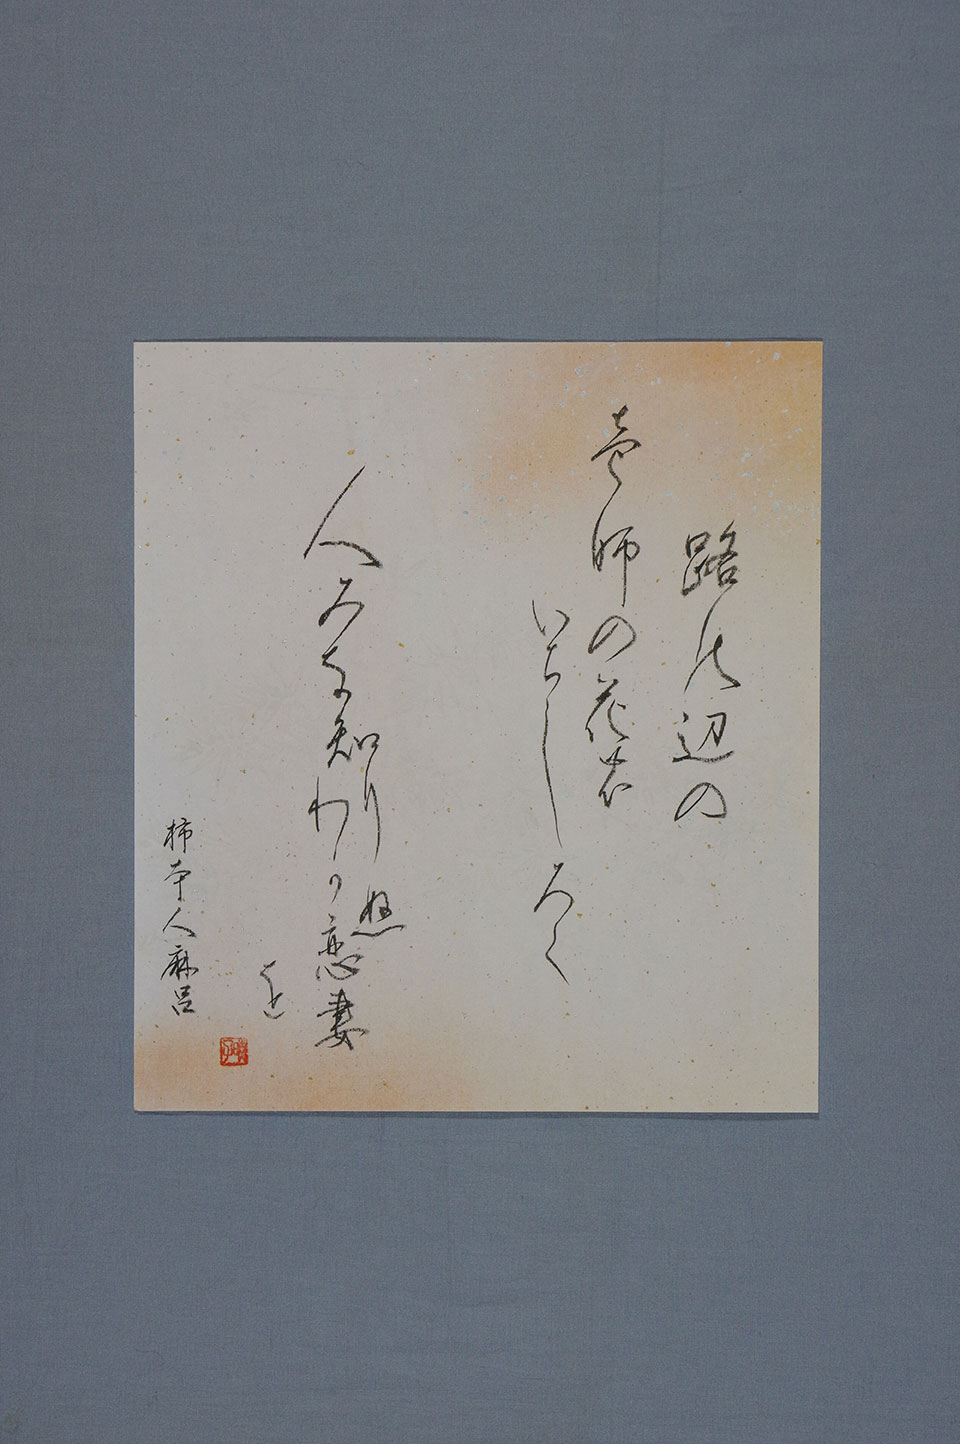 路の辺の
壱師の花の
いちしろく
人みな知りぬ
わが恋妻
を
柿本人麻呂